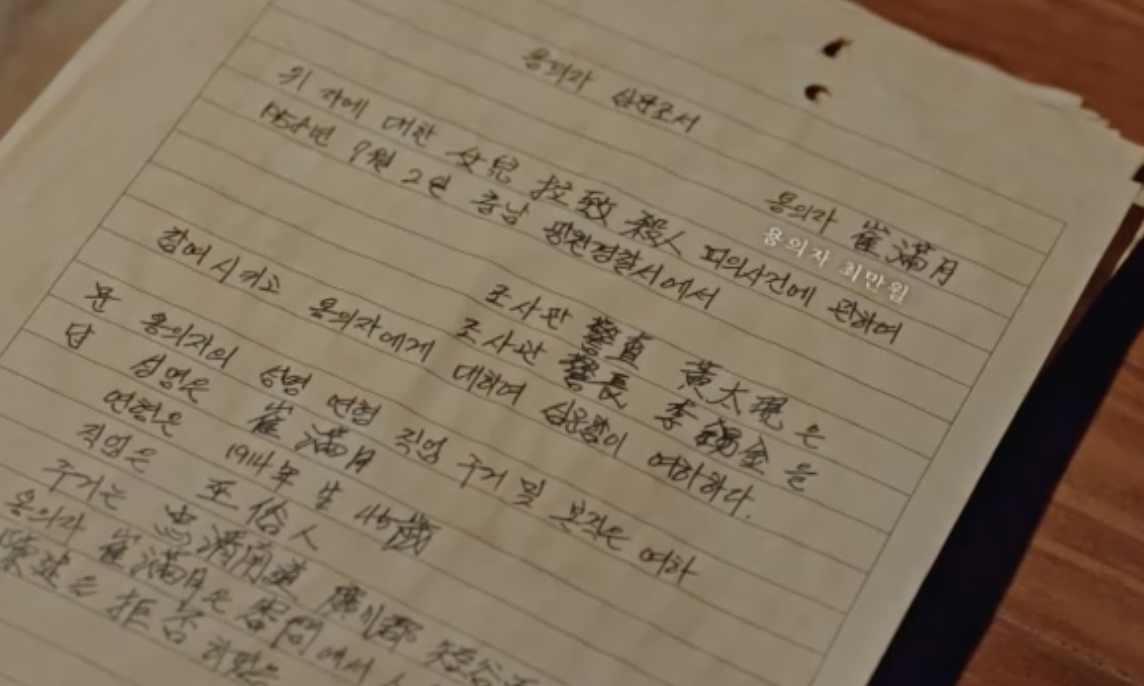 용의자 심문조서
용의자 崔滿月
용의자 최만월
위 자에 대한 女兒 拉致 殺人 피의사건에 관하여
1958년 9월 2일 충남 광천경찰서에서
조사관 警査 黃大現 은
조사관 警長 李錫金 을
참여시키고 용의자에게 대하여 심문함이 여하하다.
문 용의자의 성명 연령 직업 주거 및 본적은 여하
답 성명은 崔滿月
연령은 1914年 生 45歲
직업은 巫俗人
주거는 忠淸南道 廣川郡
용의자 崔滿月은 에서
은 拒否 하였은